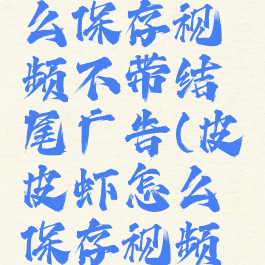 么保存视
频不带结
尾广告(皮
皮虾怎么
保存视频